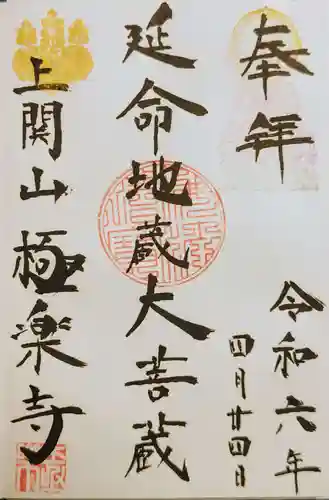 奉拝
令和六年
四月廿四日
延命地蔵大菩蔵
上関山極楽寺